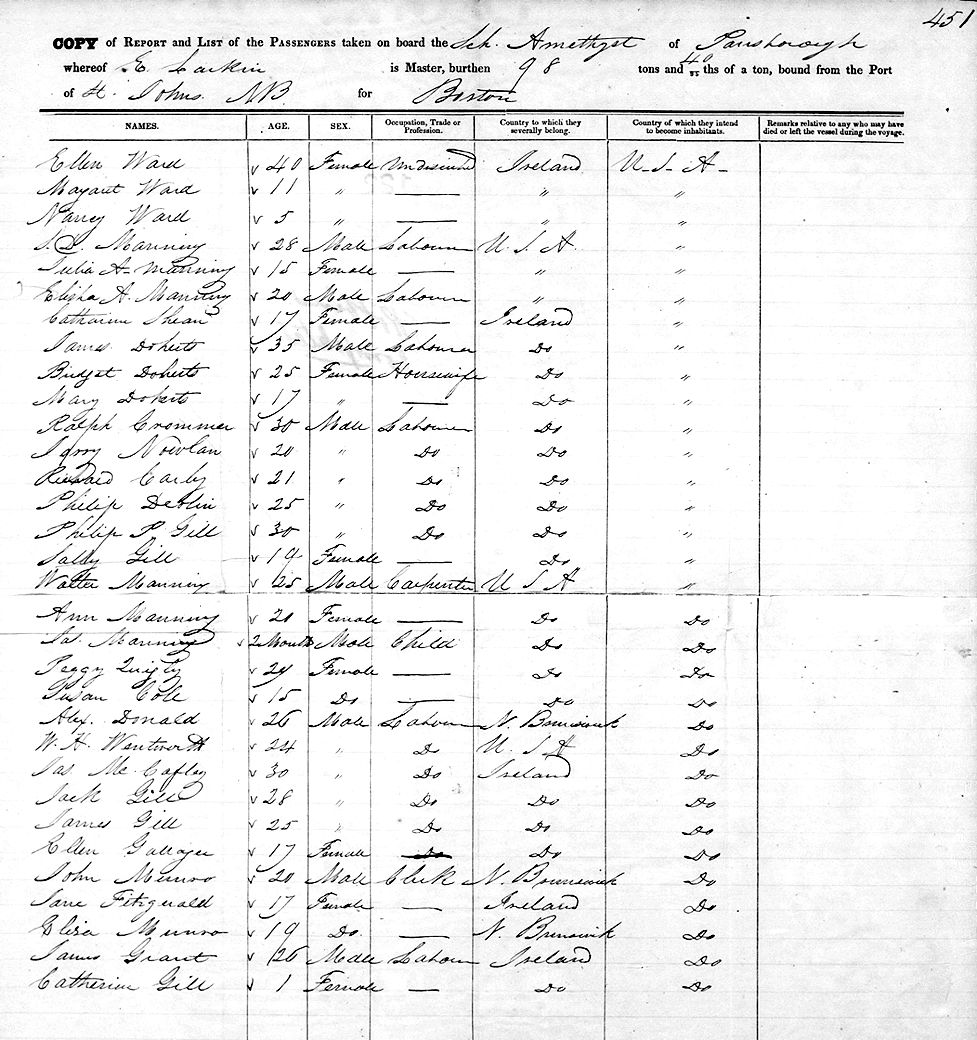 451
COPY of REPORT and LIST of the PASSENGERS taken on board the Sch. Amethyst of Parsborough
whereof E. Larkin is Master, burthen 98 tons and 40/95ths of a ton, bound from the Port
of St. Johns NB for Boston
NAMES. AGE. SEX. Occupation, Trade or Profession. Country to which they severally belong. Country of which they intend to become inhabitants. Remarks relative to any who may have died or left the vessel during the voyage.
Ellen Ward 40 Female Ireland U-S-A-
Margaret Ward 11 " — " "
Nancy Ward 5 " — " "
Manning 28 Male Labourer U S A "
Julia A- Manning 15 Female — " "
Elisha A. Manning 20 Male Labourer " "
Catharine Shean 17 Female — Ireland "
James Doherty 35 Male Labourer Do "
Bridget Doherty 25 Female Housewife Do "
Mary Doherty 17 " — Do "
Ralph Crommer 30 Male Labourer Do "
Jerry Nowlan 20 " Do Do "
Richard Carly 21 " Do Do "
Philip Devlin 25 " Do Do "
Philip P. Gill 30 " Do Do "
Sally Gill 19 Female — Do "
Walter Manning 25 Male Carpenter U S A "
Ann Manning 20 Female — Do Do
Jas. Manning 2 Months Male Child Do Do
Peggy Quigly 24 Female — Do Do
Susan Cole 15 Do — Do Do
Alex. Donald 26 Male Labourer N. Brunswick Do
W. H. Wentworth 24 " Do U. S A Do
Jas. Mc. Cafley 30 " Do Ireland Do
Jack Gill 28 " Do Do Do
James Gill 25 " Do Do Do
Ellen Gallager 17 Female Do Do
John Munro 20 Male Clerk N. Brunswick Do
Jane Fitzgerald 17 Female — Ireland Do
Eliza Munro 19 Do — N. Brunswick Do
James Grant 26 Male Labourer Ireland Do
Catherine Gill 1 Female — Do Do